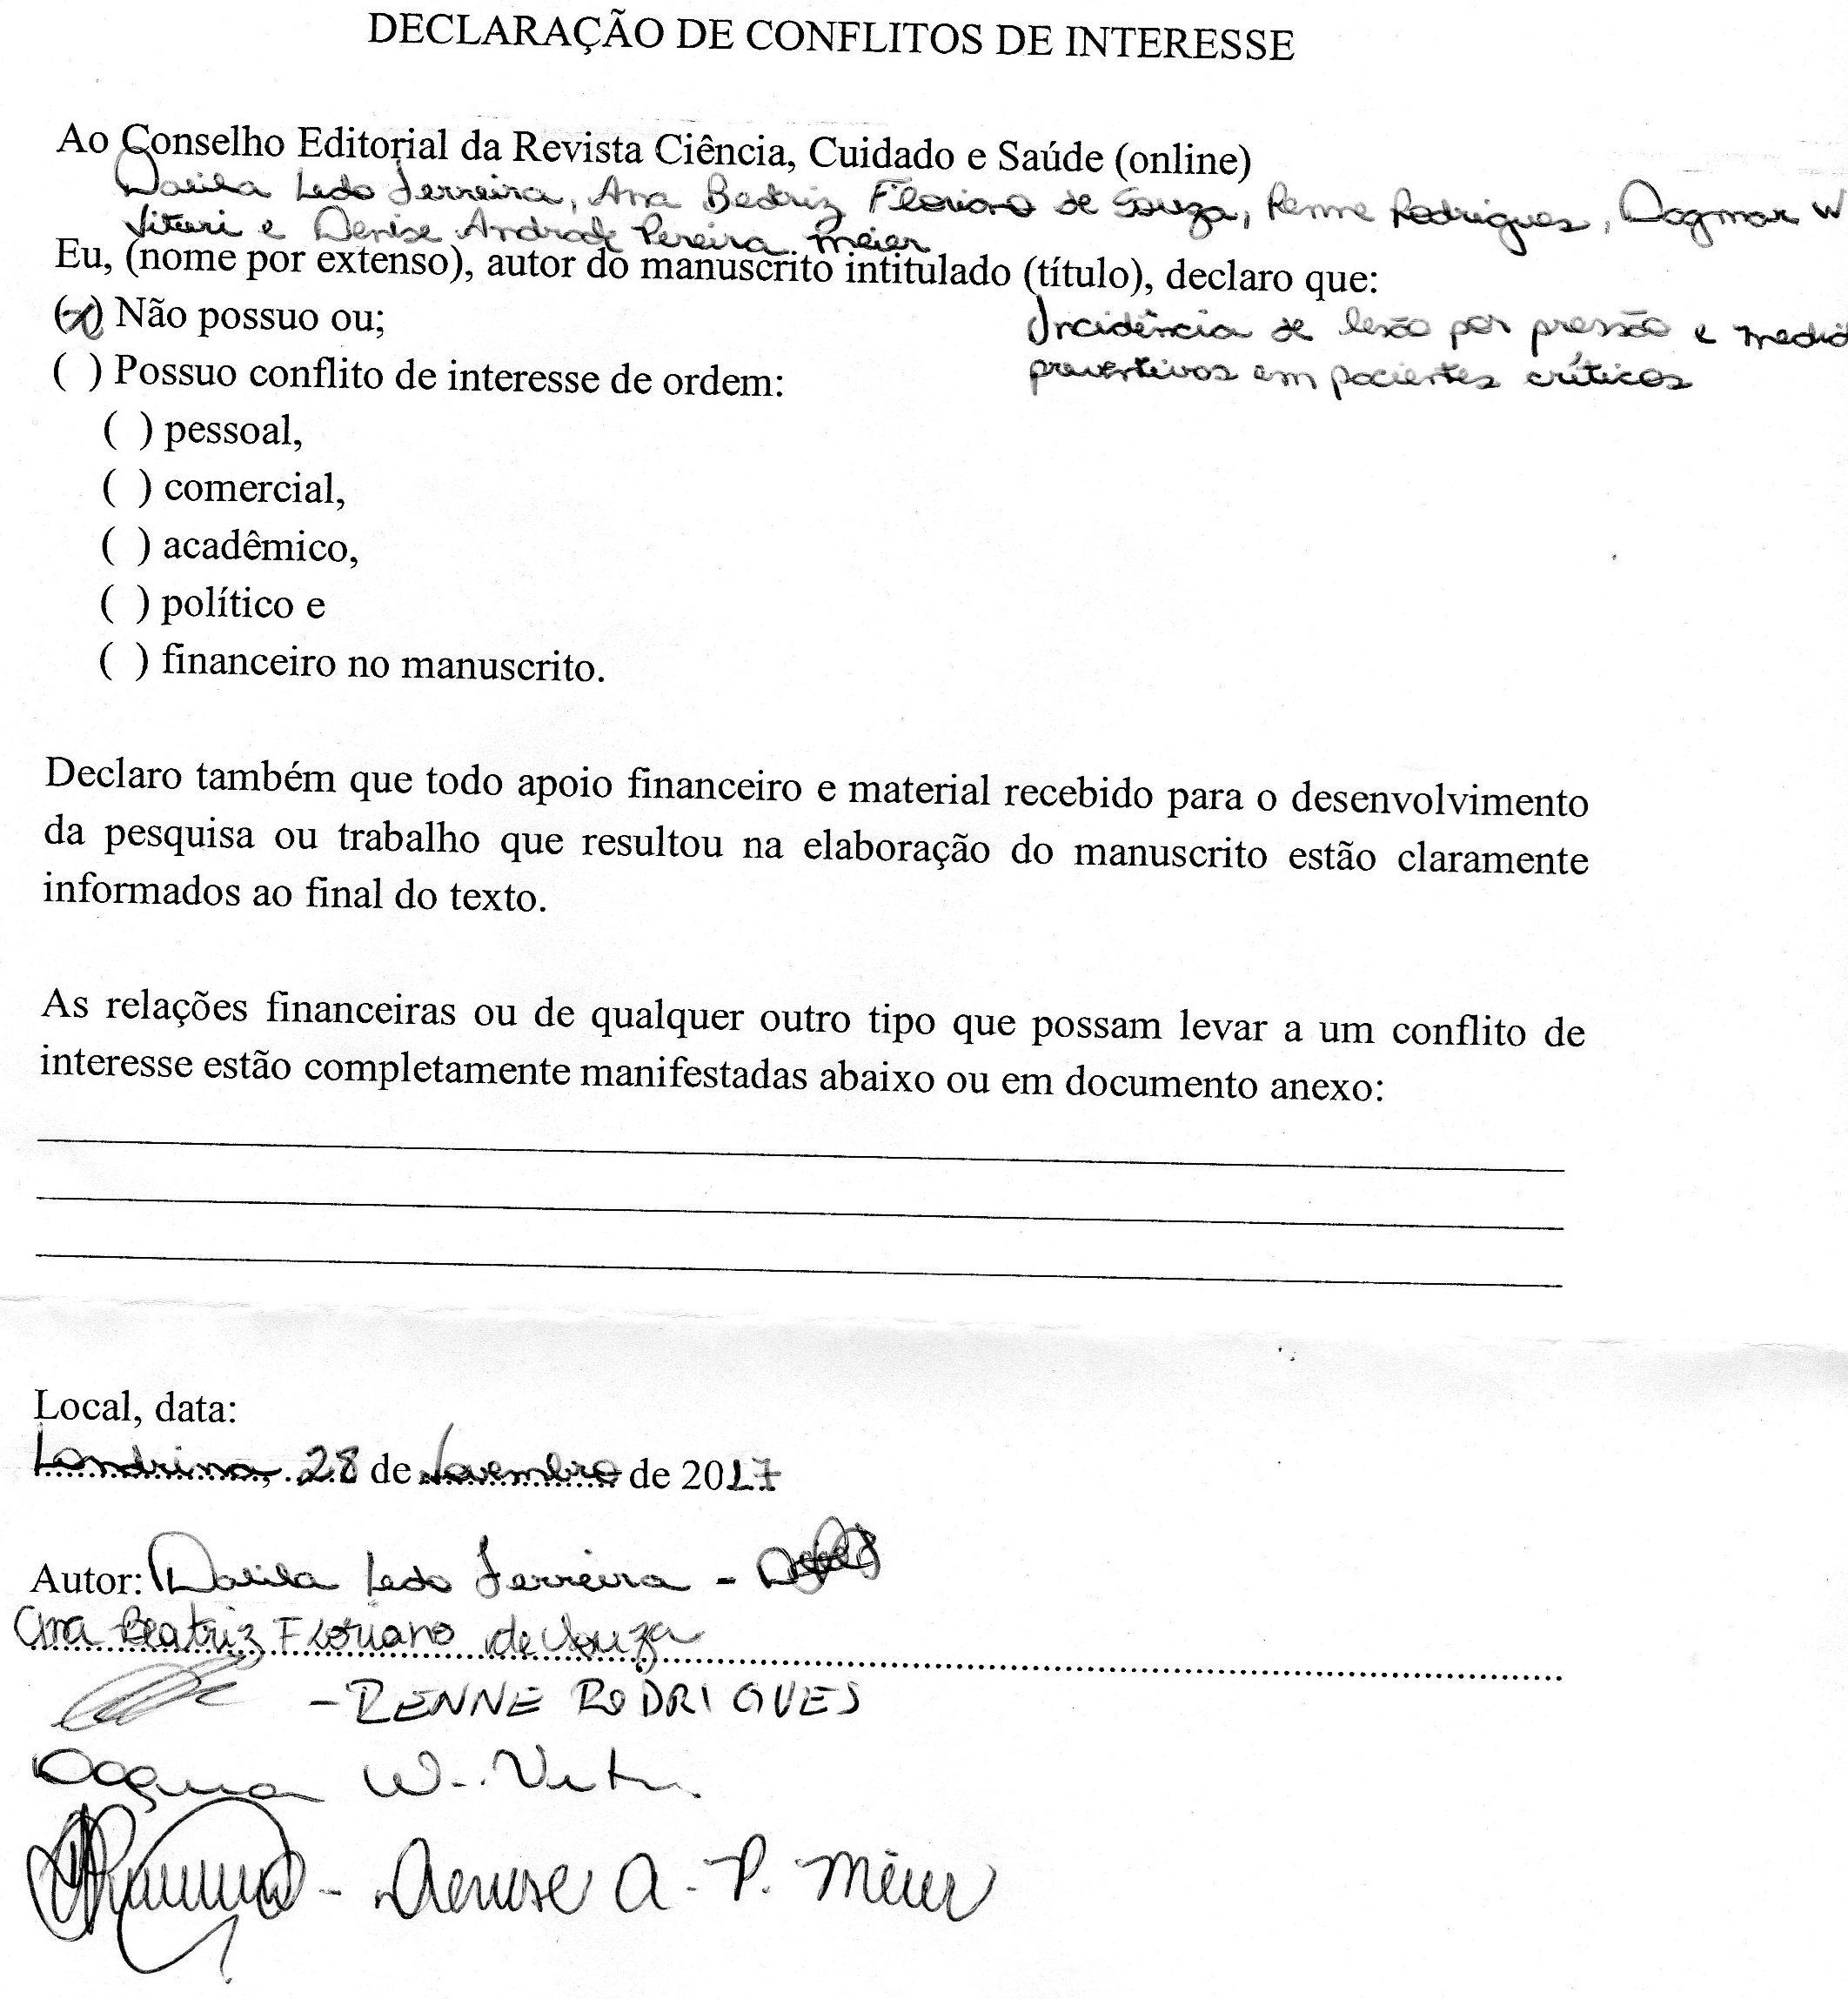 DECLARAÇÃO DE CONFLITOS DE INTERESSE
Ao Conselho Editorial da Revista Ciência, Cuidado e Saúde (online)
Dalila Ledo Ferreira, Ana Beatriz Floriano de Souza, Renne Rodrigues, Dagmar W
Vituri e Denise Andrade Pereira Meier
Eu, (nome por extenso), autor do manuscrito intitulado (título), declaro que:
(x) Não possuo ou;
Incidência de lesão por pressão e medid
preventivas em pacientes críticos
( ) Possuo conflito de interesse de ordem:
( ) pessoal,
( ) comercial,
( ) acadêmico,
( ) político e
( ) financeiro no manuscrito.
Declaro também que todo apoio financeiro e material recebido para o desenvolvimento
da pesquisa ou trabalho que resultou na elaboração do manuscrito estão claramente
informados ao final do texto.
As relações financeiras ou de qualquer outro tipo que possam levar a um conflito de
interesse estão completamente manifestadas abaixo ou em documento anexo:
Local, data:
Londrina, 28 de Novembro de 2017
Autor: Dalila Ledo Ferreira -
Ana Beatriz Floriano de Souza
- RENNE RODRIGUES
Dagmar W. Vituri
- Denise A. P. Meier